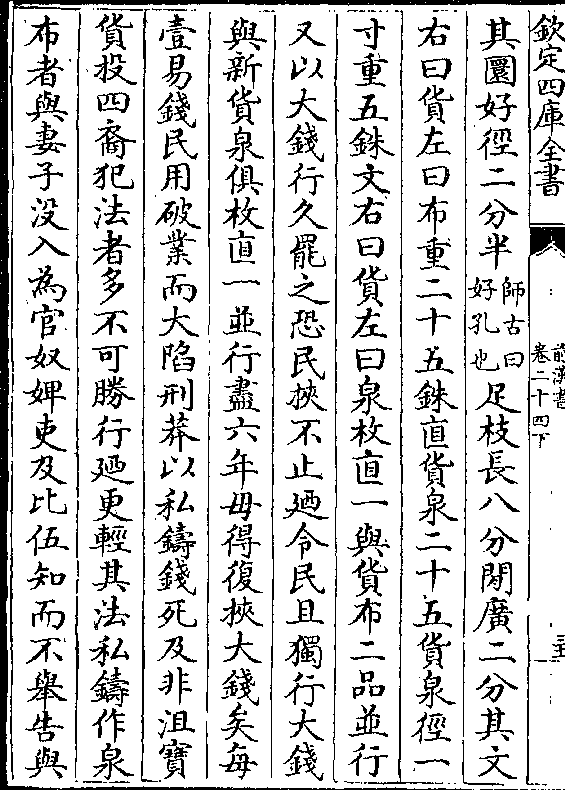 欽定四庫全書
前漢書
卷二十四下
其圜好徑二分半師古曰好孔也足枝長八分閒廣二分其文
右曰貨左曰布重二十五銖直貨泉二十五貨泉徑一
寸重五銖文右曰貨左曰泉枚直一與貨布二品並行
又以大錢行久罷之恐民挾不止廼令民且獨行大錢
與新貨泉俱枚直一並行盡六年毋得復挾大錢矣每
壹易錢民用破業而大陷刑莽以私鑄錢死及非沮寶
貨投四裔犯法者多不可勝行廼更輕其法私鑄作泉
布者與妻子没入為官奴婢吏及比伍知而不舉告與